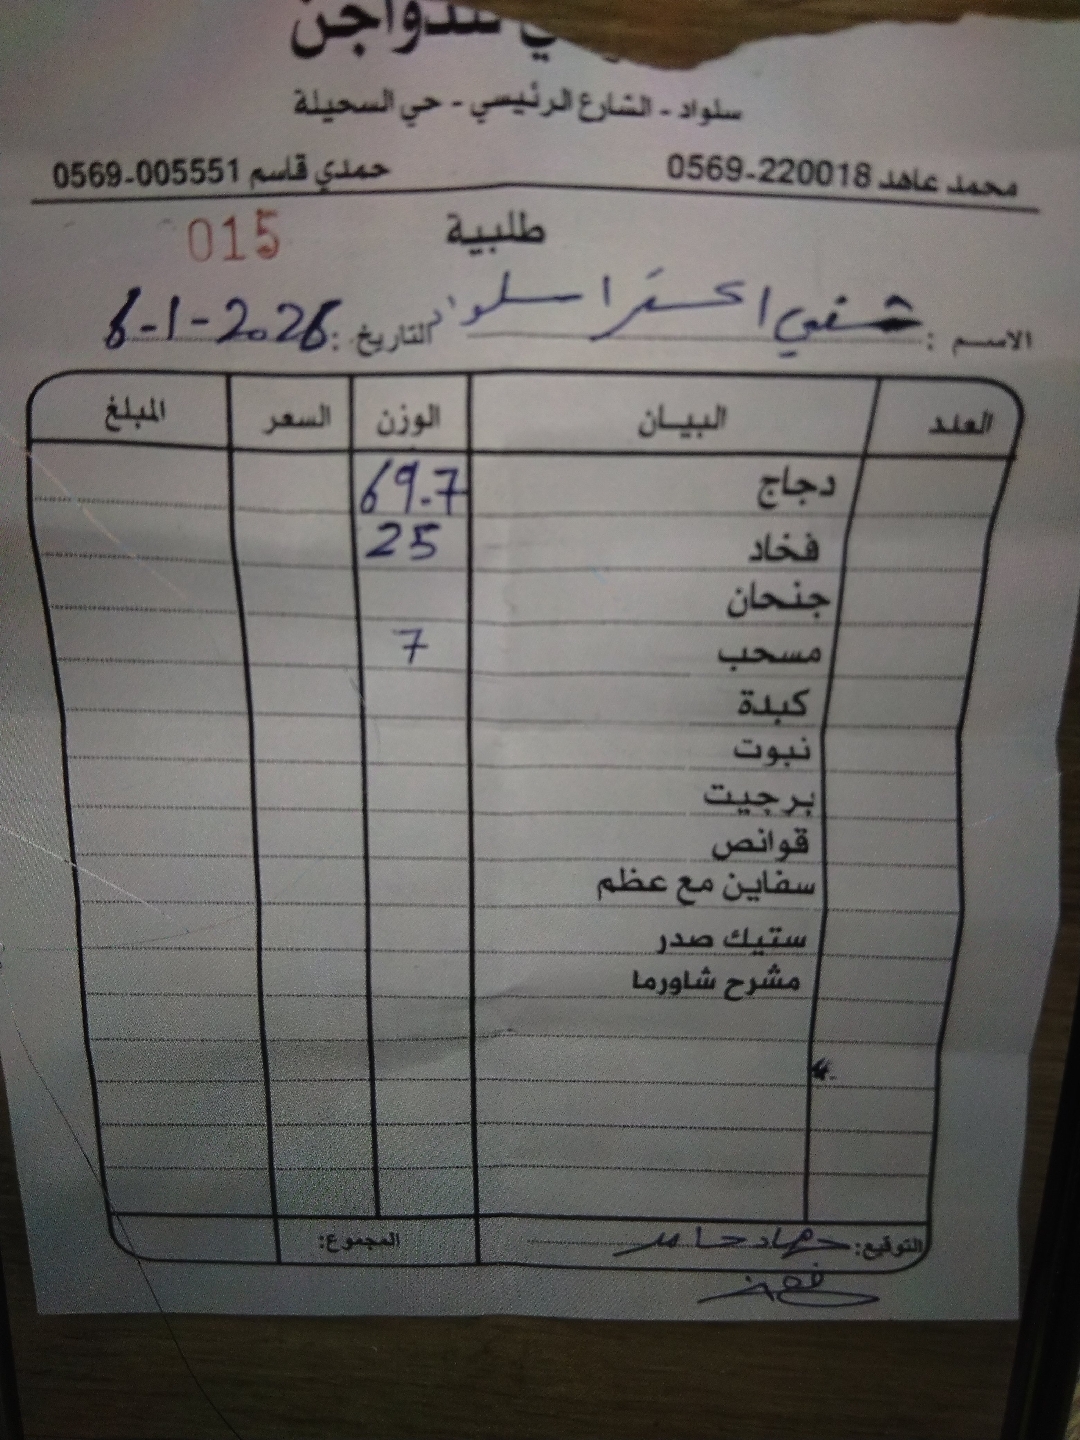 للدواجن
سلواد - الشارع الرئيسي - حي السحيلة
محمد عاهد 0569-220018 حمدي قاسم 0569-005551
طلبية 015
الاسم : سلواد التاريخ : 6-1-2026
العدد البيان الوزن السعر المبلغ
دجاج 69.7
فخاد 25
جنحان
مسحب 7
كبدة
نبوت
برجيت
قوانص
سفاين مع عظم
ستيك صدر
مشرح شاورما
التوقيع: جهاد حامد المجموع: